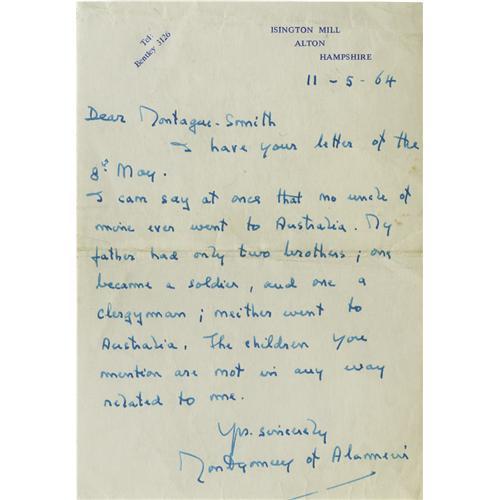 Tel:
Bentley 3126
ISINGTON MILL
ALTON
HAMPSHIRE
11-5-64
Dear Montague-Smith
I have your letter of the
8th May.
I can say at once that no uncle of
mine ever went to Australia. My
father had only two brothers; one
became a soldier, and one a
clergyman; neither went to
Australia. The children you
mention are not in any way
related to me.
Yrs. sincerely
Montgomery of Alamein